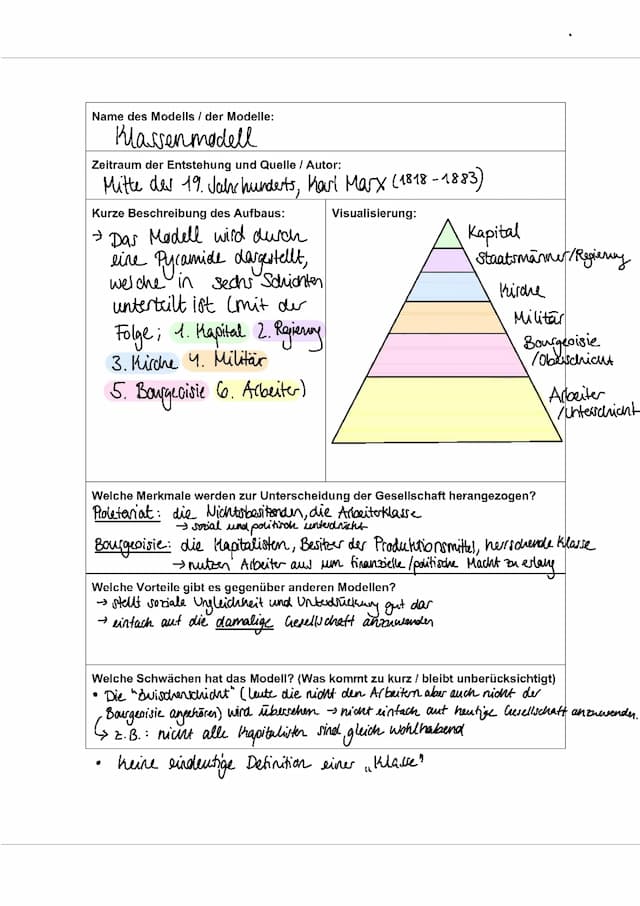 Name des Modells / der Modelle:
Klassenmodell
Zeitraum der Entstehung und Quelle / Autor:
Mitte des 19. Jahrhunderts, Karl Marx (1818 - 1883)
Kurze Beschreibung des Aufbaus:
→ Das Modell wird durch
eine Pyramide dargestellt,
welche in sechs Schichten
unterteilt ist (mit der
Folge; 1. Kapital 2. Regierung
3. Kirche 4. Militär
5. Bourgeoisie 6. Arbeiter)
Visualisierung:
Kapital
Staatsmänner/Regierung
Kirche
Militär
Bourgeoisie
/Oberschicht
Arbeiter
/Unterschicht
Welche Merkmale werden zur Unterscheidung der Gesellschaft herangezogen?
Proletariat: die Nichtsbesitzenden, die Arbeiterklasse
→ sozial und politisch unterdrückt
Bourgeoisie: die Kapitalisten, Besitzer der Produktionsmittel, herrschende Klasse
→ nutzen Arbeiter aus um finanzielle/politische Macht zu erlang
Welche Vorteile gibt es gegenüber anderen Modellen?
→ stellt soziale Ungleichheit und Unterdrückung gut dar
→ einfach auf die damalige Gesellschaft anzuwenden
Welche Schwächen hat das Modell? (Was kommt zu kurz / bleibt unberücksichtigt)
• Die "Zwischenschicht" (Leute die nicht den Arbeitern aber auch nicht der
Bourgeoisie angehören) wird übersehen → nicht einfach auf heutige Gesellschaft anzuwenden.
↳ z.B.: nicht alle Kapitalisten sind gleich wohlhabend
• Keine eindeutige Definition einer „Klasse"